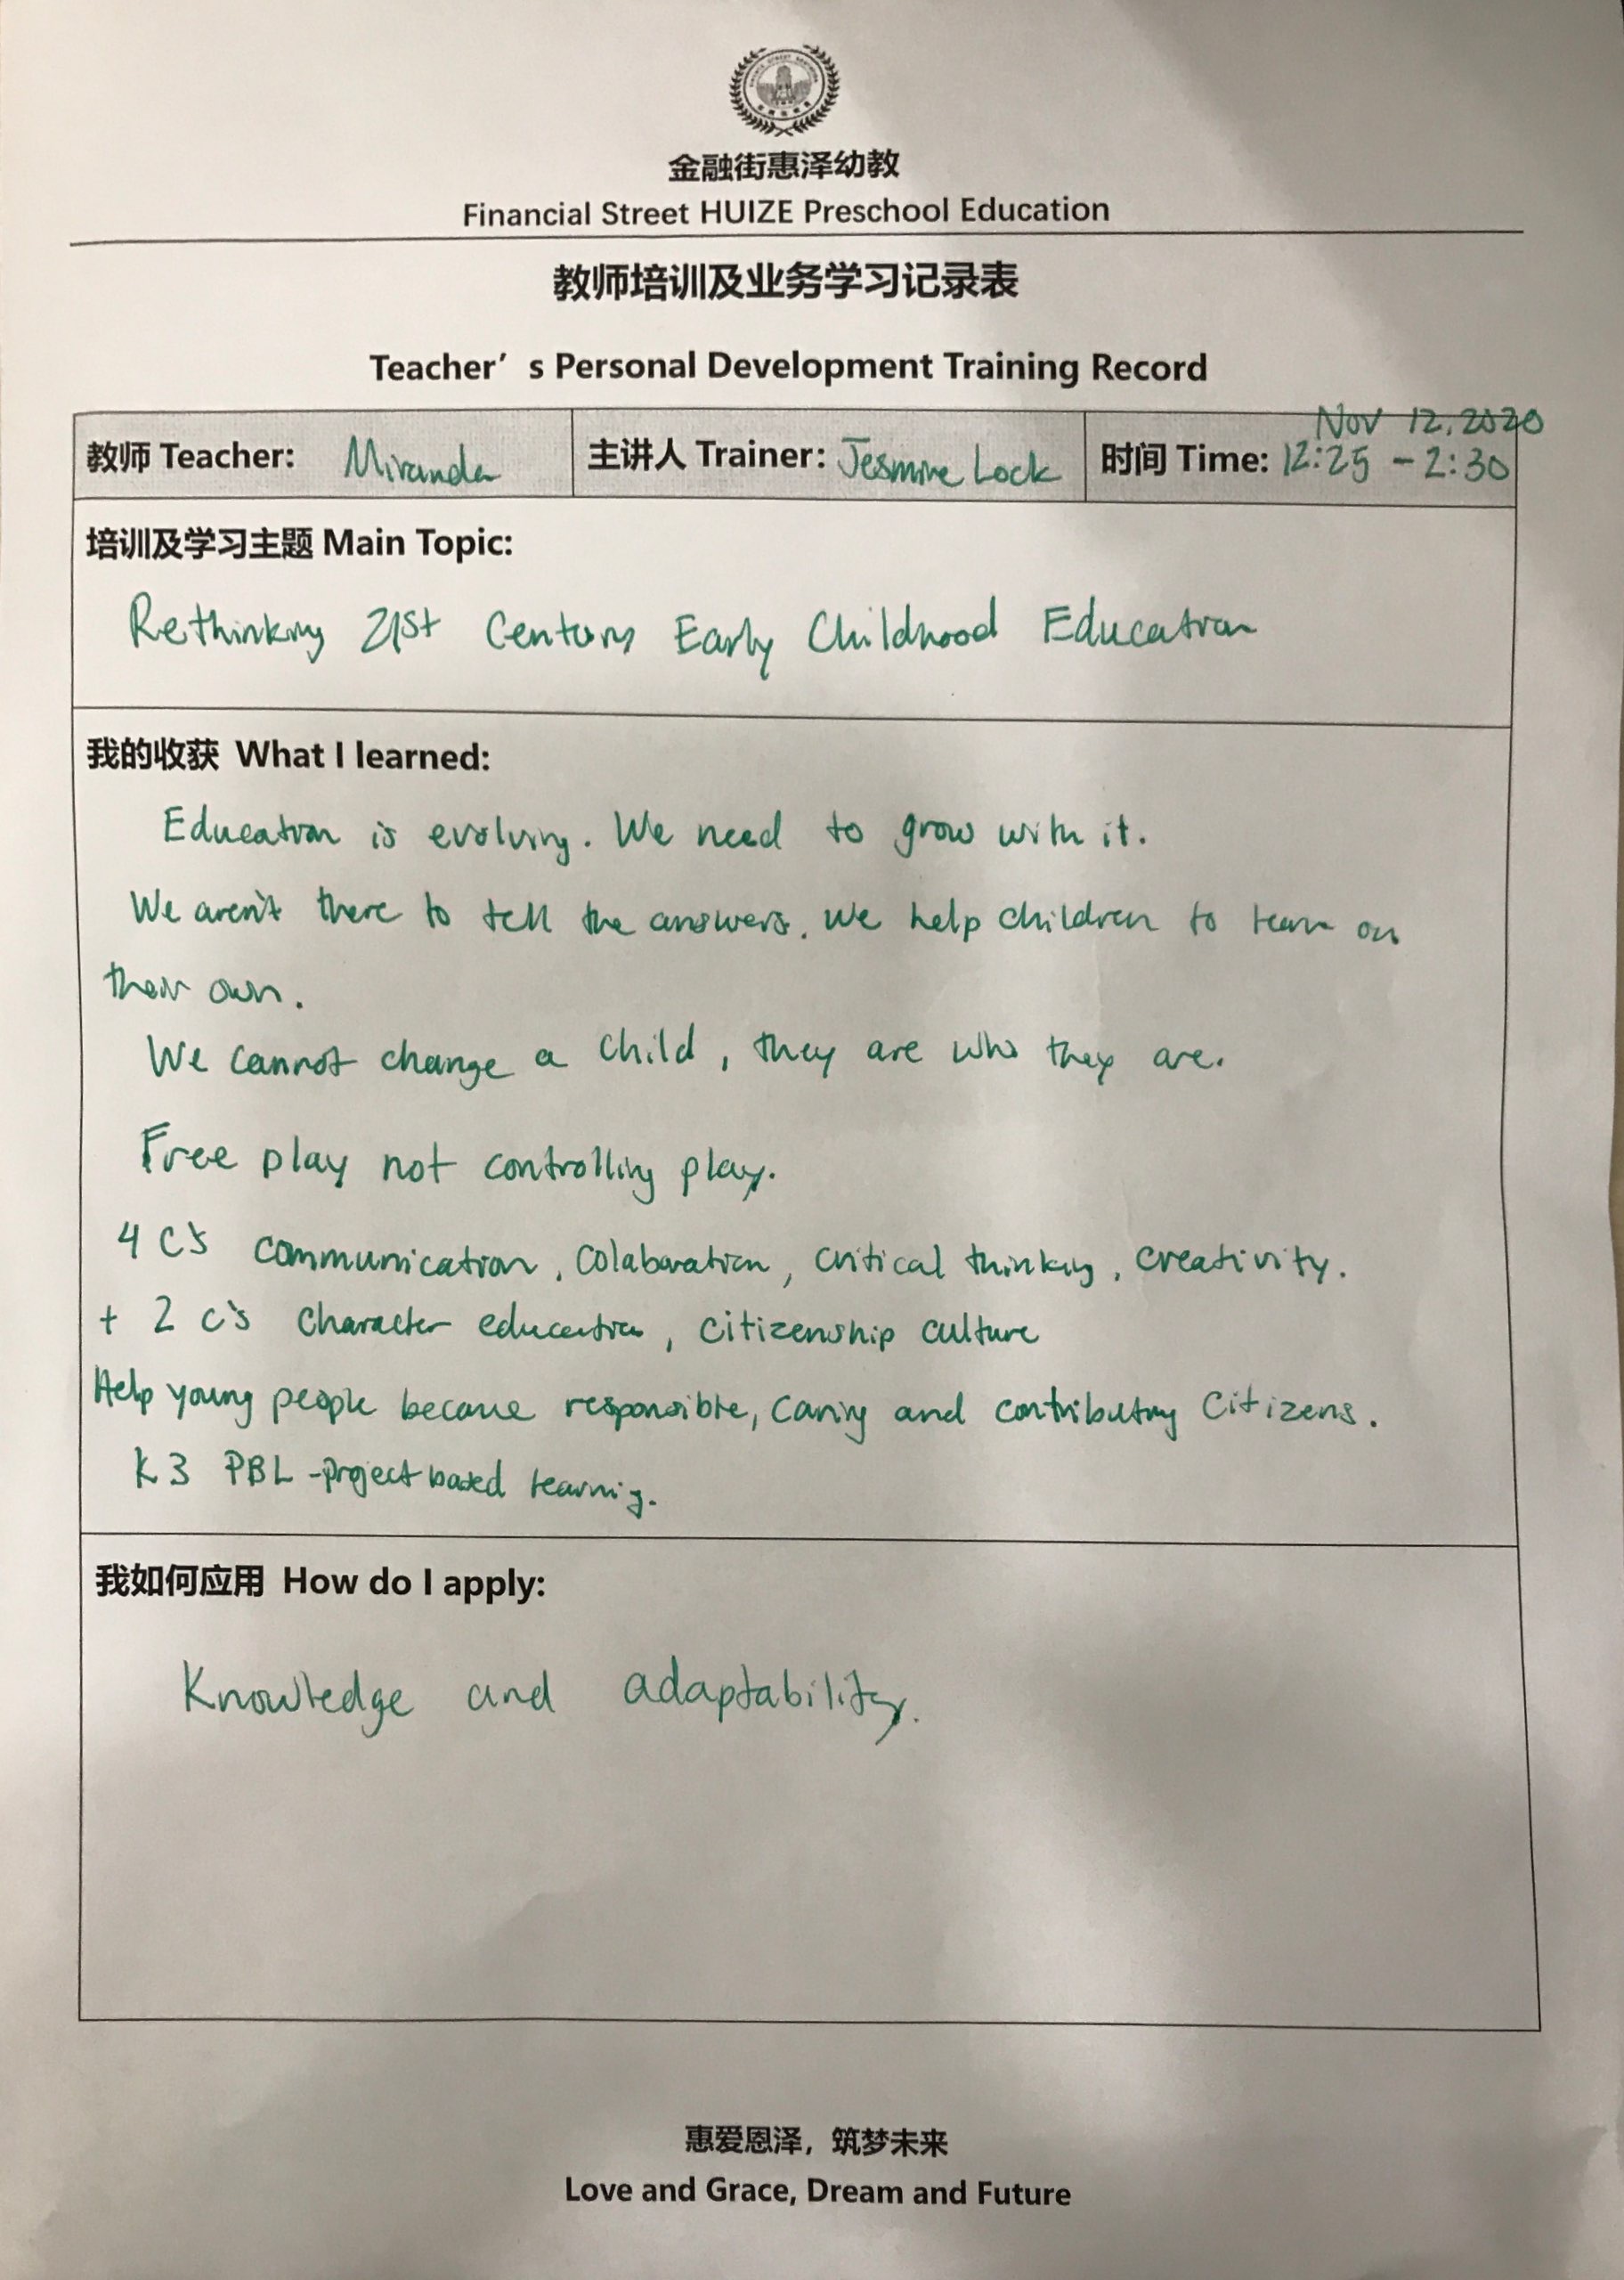 金融街惠泽幼教
Financial Street HUIZE Preschool Education
教师培训及业务学习记录表
Teacher's Personal Development Training Record
教师 Teacher: Miranda 主讲人 Trainer: Jesmine Lock 时间 Time: Nov 12, 2020 12:25 - 2:30
培训及学习主题 Main Topic:
Rethinking 21st Century Early Childhood Education
我的收获 What I learned:
Education is evolving. We need to grow with it.
We aren't there to tell the answers. We help children to learn on
their own.
We cannot change a child, they are who they are.
Free play not controlling play.
4 C's communication, colaboration, critical thinking, creativity.
+ 2 c's character education, citizenship culture
Help young people become responsible, caring and contributing citizens.
K3 PBL - project based learning.
我如何应用 How do I apply:
Knowledge and adaptability.
惠爱恩泽，筑梦未来
Love and Grace, Dream and Future